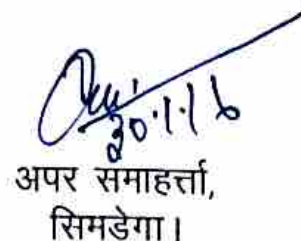 30.1.16
अपर समाहर्त्ता,
सिमडेगा।